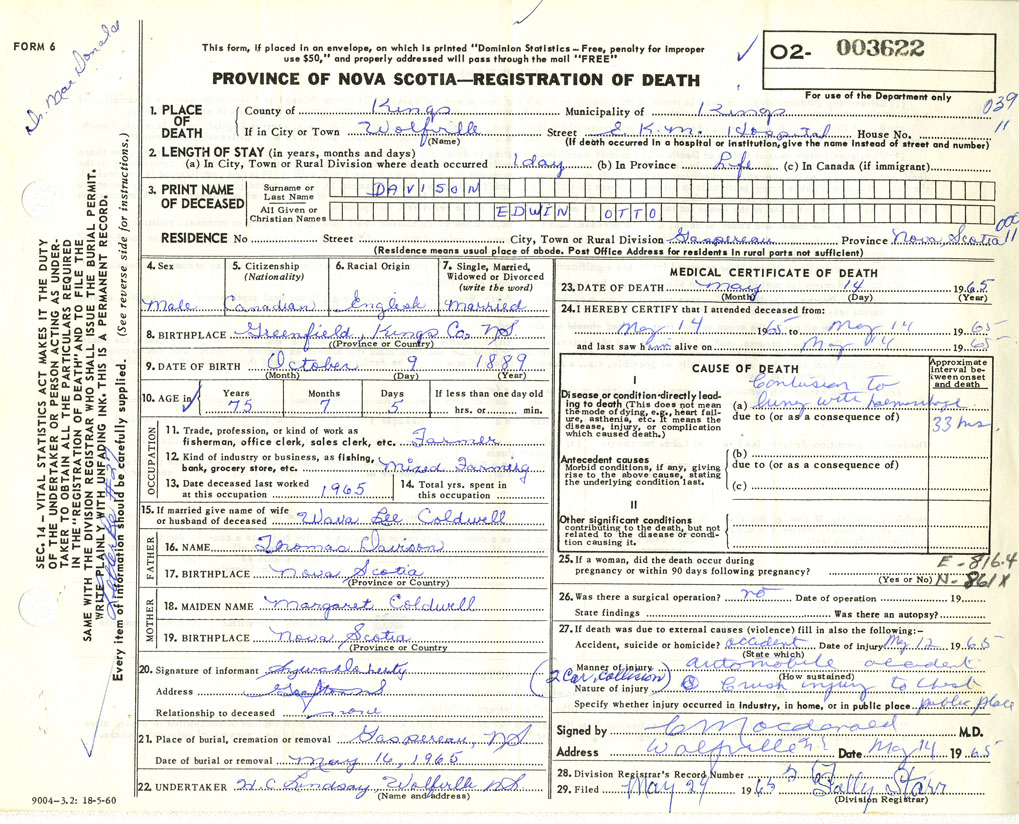 FORM 6
Dr. MacDonald
This form, if placed in an envelope, on which is printed "Dominion Statistics – Free, penalty for improper
use $50," and properly addressed will pass through the mail "FREE"
PROVINCE OF NOVA SCOTIA—REGISTRATION OF DEATH
O2- 003622
For use of the Department only
039
11
1. PLACE OF DEATH
County of Kings Municipality of Kings
If in City or Town Wolfville Street E.K.M. Hospital House No.
(Name) (If death occurred in a hospital or institution, give the name instead of street and number)
2. LENGTH OF STAY (in years, months and days)
(a) In City, Town or Rural Division where death occurred 1 day (b) In Province Life (c) In Canada (if immigrant)
3. PRINT NAME OF DECEASED
Surname or Last Name DAVISON
All Given or Christian Names EDWIN OTTO
000
11
RESIDENCE No Street City, Town or Rural Division Gaspereau Province Nova Scotia
(Residence means usual place of abode. Post Office Address for residents in rural parts not sufficient)
4. Sex Male
5. Citizenship (Nationality) Canadian
6. Racial Origin English
7. Single, Married, Widowed or Divorced (write the word) Married
8. BIRTHPLACE Greenfield, Kings Co. NS
(Province or County)
9. DATE OF BIRTH October 9 1889
(Month) (Day) (Year)
10. AGE in Years 75 Months 7 Days 5 If less than one day old hrs. or min.
OCCUPATION
11. Trade, profession, or kind of work as fisherman, office clerk, sales clerk, etc. Farmer
12. Kind of industry or business, as fishing, bank, grocery store, etc. Mixed Farming
13. Date deceased last worked at this occupation 1965
14. Total yrs. spent in this occupation
15. If married give name of wife or husband of deceased Vava Lee Coldwell
FATHER
16. NAME Thomas Davison
17. BIRTHPLACE Nova Scotia
(Province or Country)
MOTHER
18. MAIDEN NAME Margaret Coldwell
19. BIRTHPLACE Nova Scotia
(Province or Country)
20. Signature of informant
Address
Relationship to deceased none
21. Place of burial, cremation or removal Gaspereau, NS
Date of burial or removal May 16, 1965
22. UNDERTAKER H.C. Lindsay Wolfville NS
(Name and address)
9004—3.2: 18-5-60
SEC. 14 – VITAL STATISTICS ACT MAKES IT THE DUTY
OF THE UNDERTAKER OR PERSON ACTING AS UNDER-
TAKER TO OBTAIN ALL THE PARTICULARS REQUIRED
IN THE "REGISTRATION OF DEATH" AND TO FILE THE
SAME WITH THE DIVISION REGISTRAR WHO SHALL ISSUE THE BURIAL PERMIT.
WRITE PLAINLY WITH UNFADING INK. THIS IS A PERMANENT RECORD.
Every item of information should be carefully supplied. (See reverse side for instructions.)
MEDICAL CERTIFICATE OF DEATH
23. DATE OF DEATH May 14 1965
(Month) (Day) (Year)
24. I HEREBY CERTIFY that I attended deceased from:
May 14 1965 to May 14 1965
and last saw him alive on May 14 1965
CAUSE OF DEATH
Approximate interval between onset and death
I
Disease or condition directly leading to death (This does not mean the mode of dying, e.g., heart failure, asthenia, etc. It means the disease, injury, or complication which caused death.)
(a) Contusion to lung with hemorrhage
33 hrs.
due to (or as a consequence of)
Antecedent causes
Morbid conditions, if any, giving rise to the above cause, stating the underlying condition last.
(b)
due to (or as a consequence of)
(c)
II
Other significant conditions
contributing to the death, but not related to the disease or condition causing it.
25. If a woman, did the death occur during pregnancy or within 90 days following pregnancy?
(Yes or No)
E-816.4
N-861X
26. Was there a surgical operation? no Date of operation 19
State findings Was there an autopsy?
27. If death was due to external causes (violence) fill in also the following:–
Accident, suicide or homicide? accident Date of injury May 12 1965
(State which)
Manner of injury automobile accident
(2 Car, Collision) (How sustained)
Nature of injury Crush injury to chest
Specify whether injury occurred in industry, in home, or in public place public place
Signed by C Macdonald M.D.
Address Wolfville Date May 14 1965
28. Division Registrar's Record Number
29. Filed May 29 1965 Sally Starr
(Division Registrar)